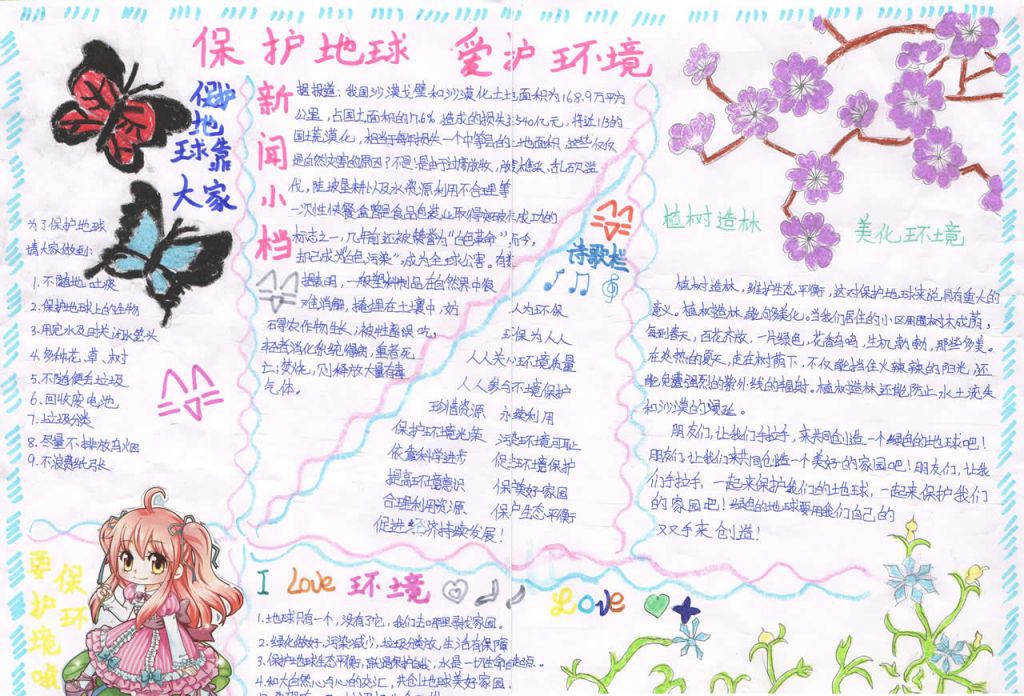 保护地球 爱护环境
保护
地
球靠
大家
为了保护地球
请大家做到:
1.不随地吐痰
2.保护地球上的生物
3.用完水及时关闭水笼头
4.多种花、草、树
5.不随便丢垃圾
6.回收废电池
7.垃圾分类
8.尽量不排放乌烟
9.不浪费纸张
新闻小档
据报道:我国沙漠戈壁和沙漠化土地面积为168.9万平方
公里,占国土面积的17.6%造成的损失540亿元,将近1/3的
国土荒漠化,相当于每年损失一个中等县的土地面积
是自然灾害的原因?不是!是由于过度放牧,
伐,陡坡垦耕以及水资源利用不合理等
一次性快餐盒曾是食品包装业取得
成功的
标志之一,几年前还被赞誉为“白色革命”
却已成为“白色污染”,成为全球公害。
一般塑料制品在自然界中很
难消解,掩埋在土壤中,妨
碍农作物生长;被牲畜误吃,
轻者消化系统得病,重者死
亡;焚烧,则释放大量有毒
气体。
诗歌栏
人为环保
环保为人人
人人关心环境质量
人人参与环境保护
珍惜资源 永续利用
保护环境光荣 污染环境可耻
依靠科学进步 促进环境保护
提高环境意识 保美好家园
合理利用资源 保户生态平衡
促进经济持续发展!
植树造林 美化环境
植树造林,维护生态平衡,这对保护地球来说具有重大的
意义。植树造林,能向多美化。当我们居住的小区周围树木成荫,
每到春天,百花齐放,一片绿色,花香鸟鸣,生机勃勃,那些多美。
在炎热的夏天,走在树荫下,不仅能挡住火辣辣的阳光,还
能免遭强烈的紫外线的辐射。植树造林还能防止水土流失
和沙漠的漫延。
朋友们,让我们手拉手,来共同创造一个绿色的地球吧!
朋友们,让我们来共同创造一个美好的家园吧!朋友们,让我
们手拉手,一起来保护我们的地球,一起来保护我们
的家园吧!绿色的地球要用我们自己的
双手来创造!
要保护环境哦
I Love 环境
Love
1.地球只有一个,没有了它,我们去哪里寻找家园。
2.绿化做好,污染减少,垃圾分类放,生活有保障
3.保护地球生态平衡,就是保护自我,水是一切生命的起点。
4.和大自然心与心的交汇,共创地球美好家园